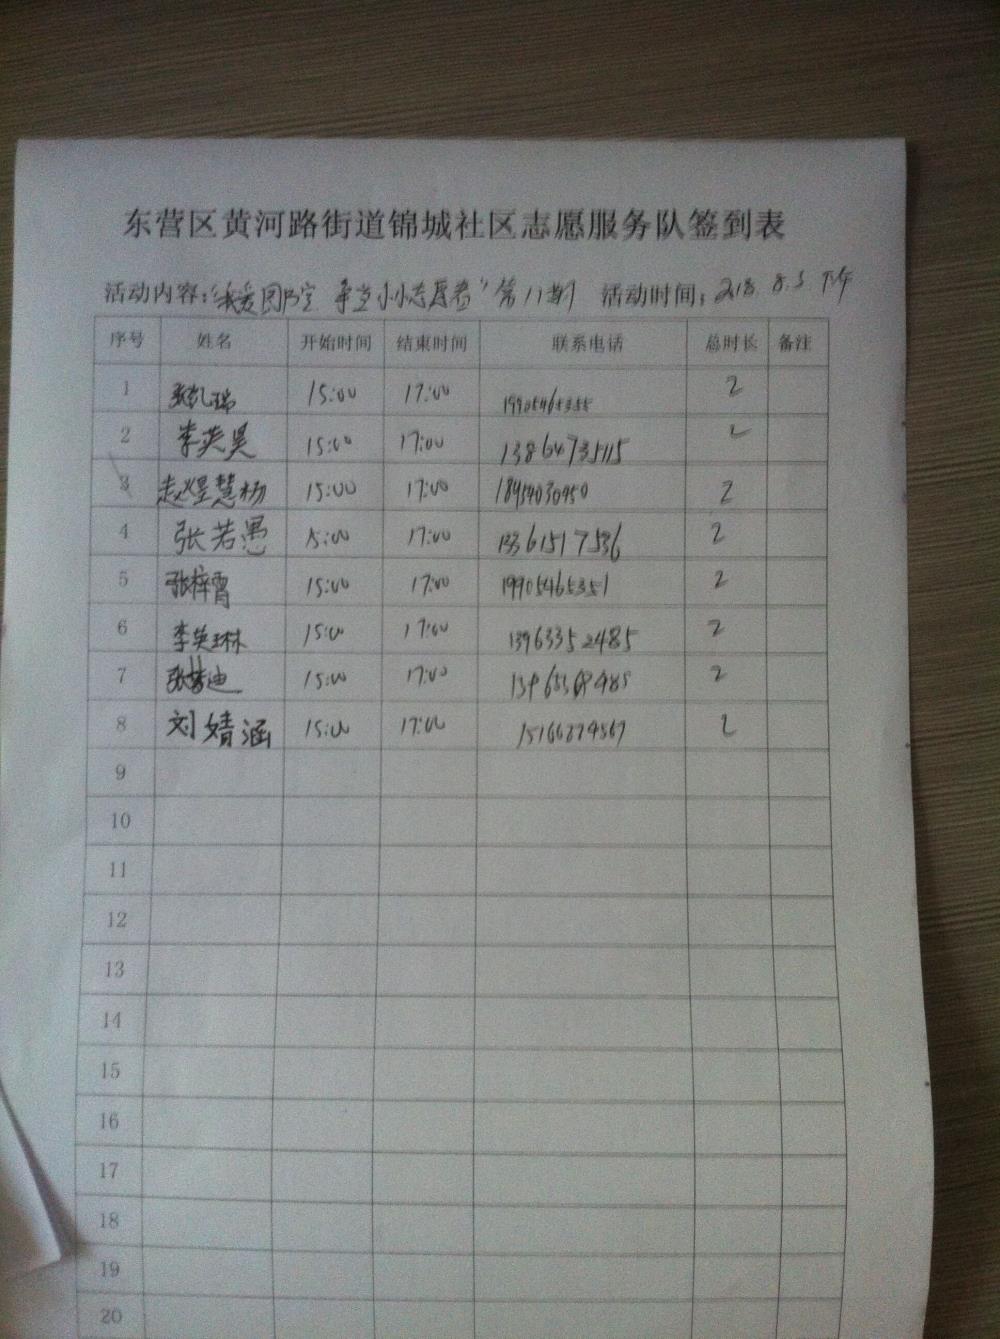 东营区黄河路街道锦城社区志愿服务队签到表
活动内容:“我爱图书室 争当小小志愿者”第11期 活动时间: 2018.8.3 下午
序号 姓名 开始时间 结束时间 联系电话 总时长 备注
1 张凯瑞 15:00 17:00 19905465355 2
2 李奕昊 15:00 17:00 13864735115 2
3 赵煜慧杨 15:00 17:00 18954030950 2
4 张若愚 15:00 17:00 13361517536 2
5 张梓霄 15:00 17:00 19905465351 2
6 李奕琳 15:00 17:00 13963352485 2
7 15:00 17:00 2
8 刘婧涵 15:00 17:00 15166274567 2
9
10
11
12
13
14
15
16
17
18
19
20